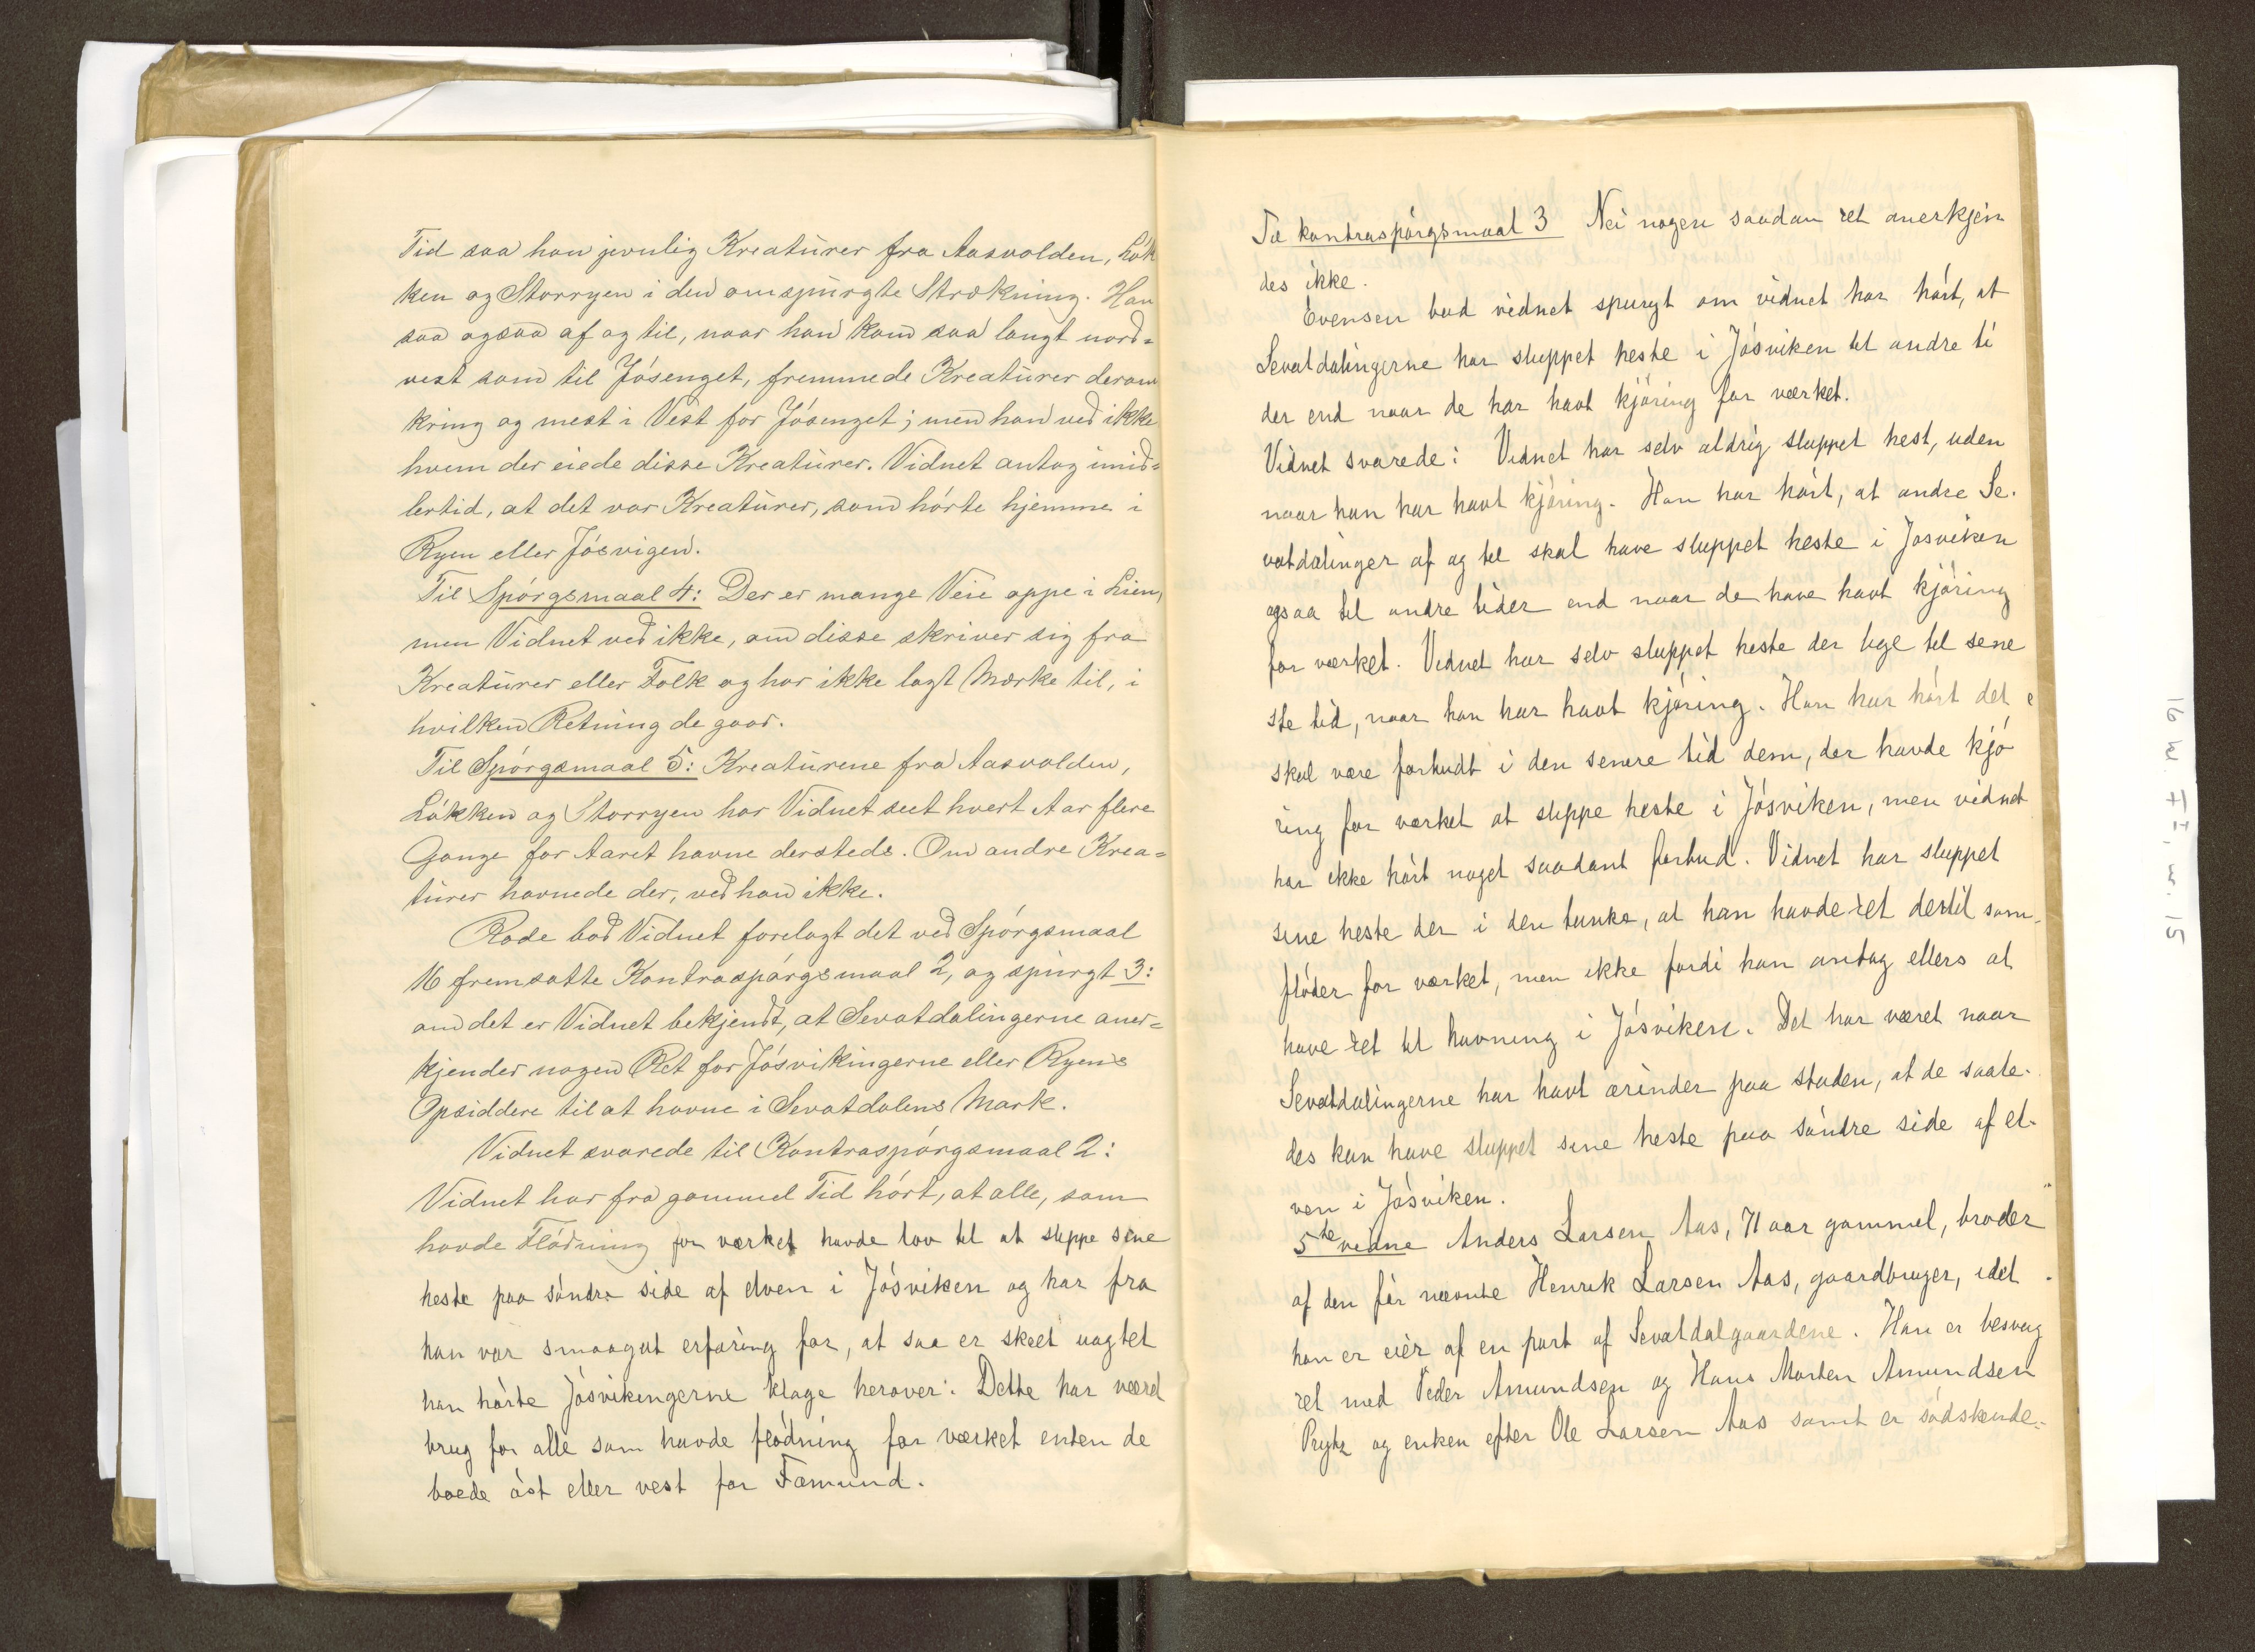 Tid saa han jevnlig Kreaturer fra Aasvolden, Lök
ken og Storryen i den omspurgte Strækning. Han
saa ogsaa af og til, naar han kom saa langt nord=
vest som til Jösenget, fremmede Kreaturer derom
kring og mest i Vest for Jösenget; men han ved ikke
hvem der eiede disse Kreaturer. Vidnet antog imid=
lertid, at det var Kreaturer, som hörte hjemme i
Ryen eller Jösvigen.
Til Spörgsmaal 4: Der er mange Veie oppe i Lien,
men Vidnet ved ikke, om disse skriver sig fra
Kreaturer eller Folk og har ikke lagt Mærke til, i
hvilken Retning de gaar.
Til Spörgsmaal 5: Kreaturene fra Aasvolden,
Lökken og Storryen har Vidnet seet hvert Aar flere
Gange for Aaret havne dersteds. Om andre Krea=
turer havnede der, ved han ikke.
Rode bad Vidnet forelagt det ved Spörgsmaal
16 fremsatte Kontraspörgsmaal 2, og spurgt 3:
om det er Vidnet bekjendt, at Sevatdalingerne aner=
kjender nogen Ret for Jösvikingerne eller Ryens
Opsiddere til at havne i Sevatdalens Mark.
Vidnet svarede til Kontraspörgsmaal 2:
Vidnet har fra gammel Tid hört, at alle, som
havde Flödning for værket havde lov til at slippe sine
heste paa söndre side af elven i Jösviken og har fra
han var smaagut erfaring for, at saa er skeet uagtet
han hörte Jösvikingerne klage herover. Dette har været
brug for alle som havde flödning for værket enten de
boede öst eller vest for Fæmund.
Til kontraspörgsmaal 3 Nei nogen saadan ret anerkjen
des ikke.
Evensen bad vidnet spurgt om vidnet har hört, at
Sevatdalingerne har sluppet heste i Jösviken til andre ti
der end naar de har havt kjöring for værket.
Vidnet svarede: Vidnet har selv aldrig sluppet hest, uden
naar han har havt kjöring. Han har hört, at andre Se.
vatdalinger af og til skal have sluppet heste i Jösviken
ogsaa til andre tider end naar de have havt kjöring
for værket. Vidnet har selv sluppet heste der lige til sene
ste tid, naar han har havt kjöring. Han har hört det
skal være forbudt i den senere tid dem, der havde kjö
ring for værket at slippe heste i Jösviken, men vidnet
har ikke hört noget saadant forbud. Vidnet har sluppet
sine heste der i den tanke, at han havde ret dertil som
flöder for værket, men ikke fordi han antog ellers at
have ret til havning i Jösviken. Det har været naar
Sevatdalingerne har havt ærinder paa staden, at de saale.
des kan have sluppet sine heste paa söndre side af el.
ven i Jösviken.
5te vidne Anders Larsen Aas, 71 aar gammel, broder
af den för nævnte Henrik Larsen Aas, gaardbruger, idet
han er eier af en part af Sevatdalgaardene. Han er besvog
ret med Peder Amundsen og Hans Morten Amundsen
Prytz og enken efter Ole Larsen Aas samt er södskende=
16 M. FI, M. 15